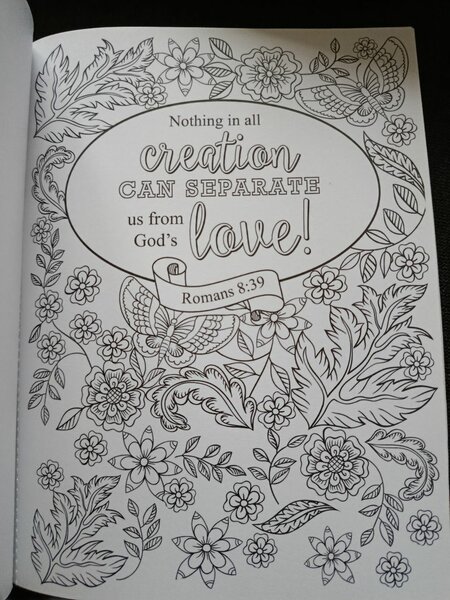 Nothing in all
creation
CAN SEPARATE
us from
God's love!
Romans 8:39